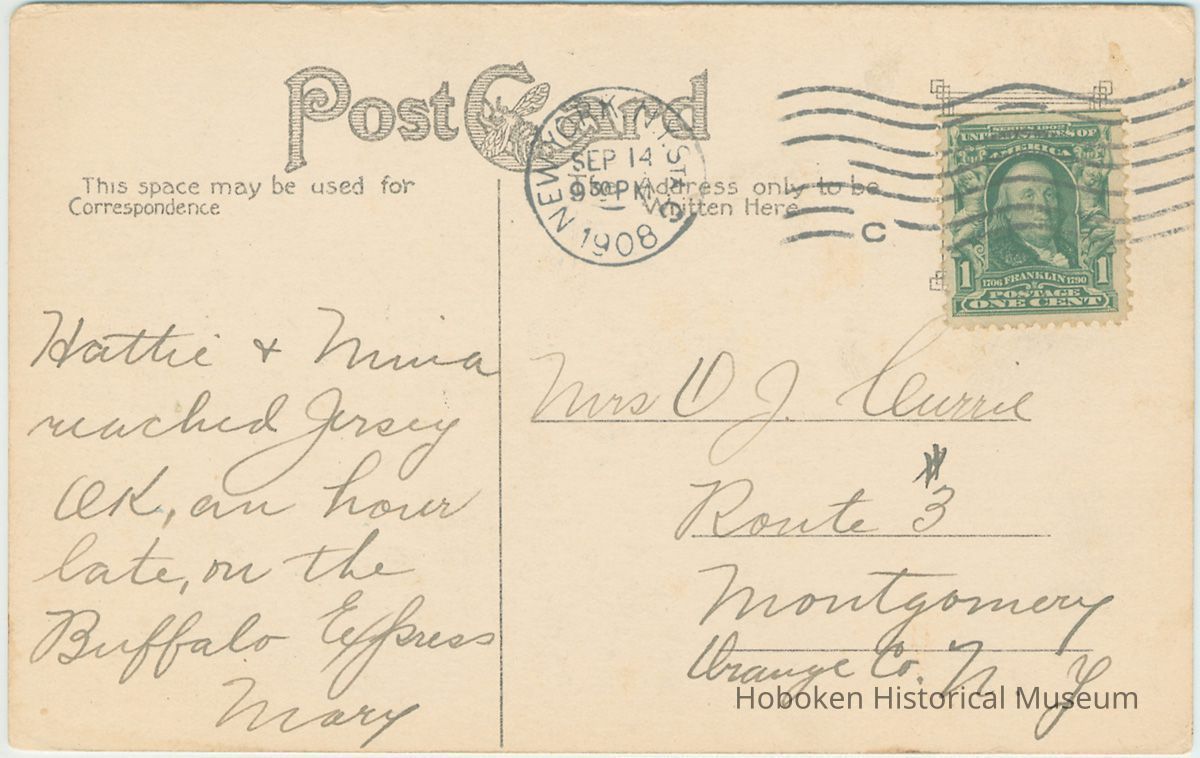 Post Card
This space may be used for
Correspondence
The Address only to be
Written Here
NEW YORK, N.Y. STA. G
SEP 14
9 30 PM
1908
C
SERIES 1902
UNITED STATES OF
AMERICA
1 1706 FRANKLIN 1790 1
POSTAGE
ONE CENT
Hattie & Mina
reached Jersey
OK, an hour
late, on the
Buffalo Express
Mary
Mrs D J. Currie
Route #3
Montgomery
Orange Co. N. Y
Hoboken Historical Museum